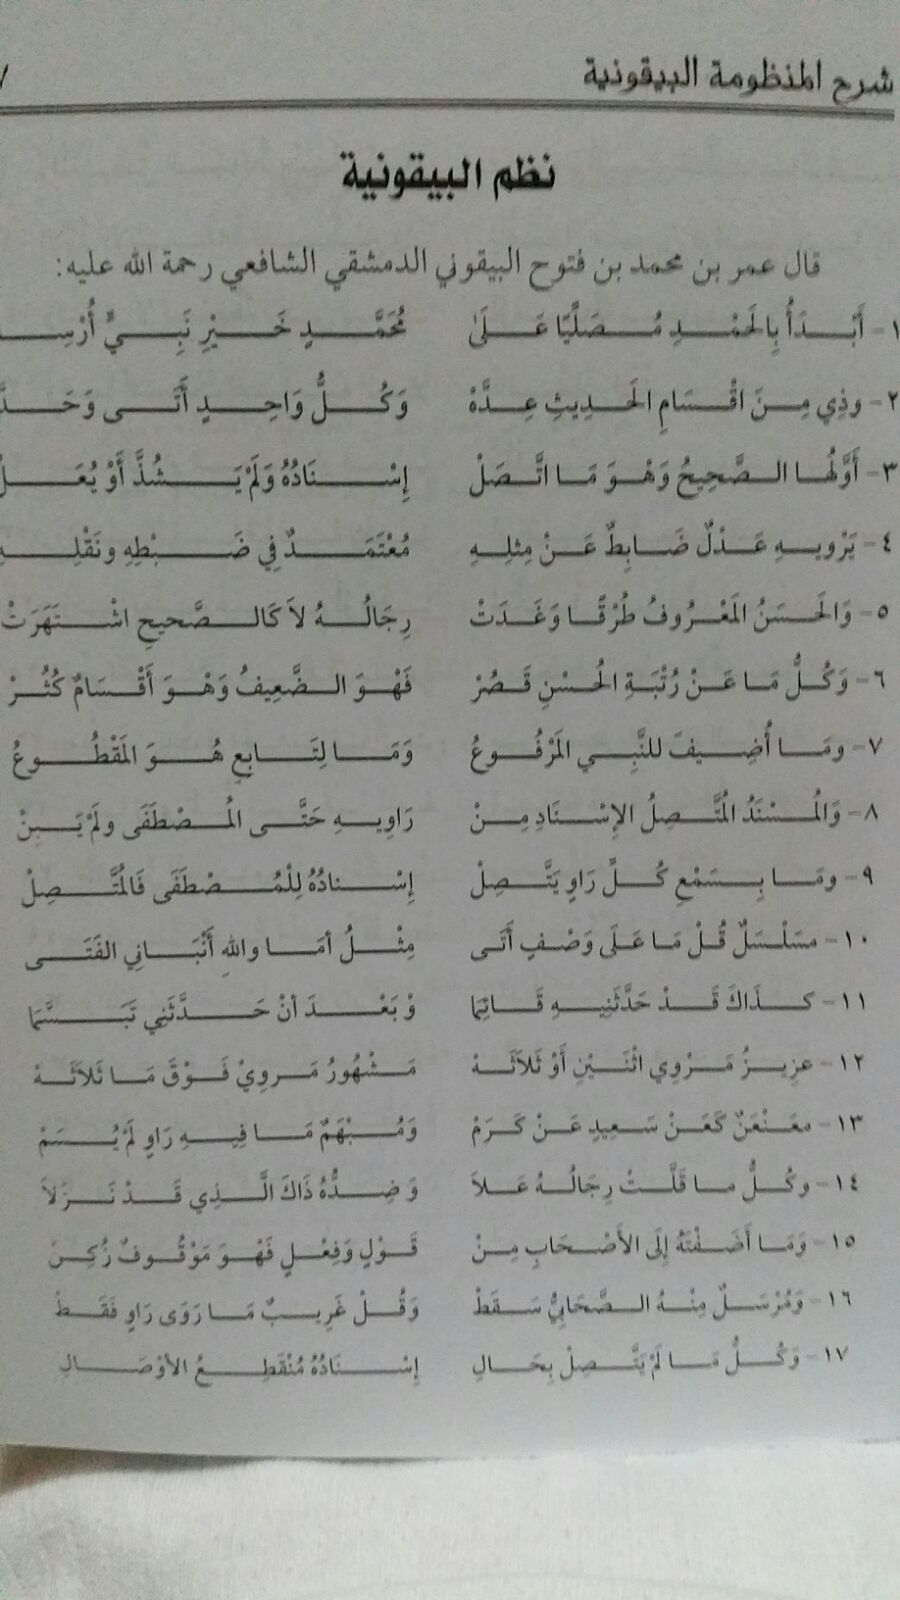 شرح المنظومة البيقونية
نظم البيقونية
قال عمر بن محمد بن فتوح البيقوني الدمشقي الشافعي رحمة الله عليه:
١- أَبْدَأُ بِالحَمْدِ مُصَلِّيًا عَلَىٰ مُحَمَّدٍ خَيْرِ نَبِيٍّ أُرْسِـ
٢- وذِي مِنَ اقْسَامِ الحَدِيثِ عِدَّهْ وَكُلُّ وَاحِدٍ أَتَى وَحَدَّ
٣- أَوَّلُهَا الصَّحِيحُ وَهْوَ مَا اتَّصَلْ إِسْنَادُهُ وَلَمْ يَشُذَّ أَوْ يُعَلْ
٤- يَرْويهِ عَدْلٌ ضَابِطٌ عَنْ مِثلِهِ مُعْتَمَدٌ فِي ضَبْطِهِ ونَقْلِهِ
٥- وَالحَسَنُ المَعْرُوفُ طُرْقًا وَغَدَتْ رِجَالُهُ لاَ كَالصَّحيحِ اشْتَهَرَتْ
٦- وَكُلُّ مَا عَنْ رُتْبَةِ الحُسْنِ قَصُرْ فَهْوَ الضَّعِيفُ وَهْوَ أَقْسَامٌ كُثُرْ
٧- ومَا أُضِيفَ للنَّبِي المَرْفُوعُ وَمَا لِتَابِعٍ هُوَ المَقْطُوعُ
٨- وَالمُسْنَدُ المُتَّصِلُ الإِسْنَادِ مِنْ رَاوِيهِ حَتَّى المُصْطَفَى ولَمْ يَبِنْ
٩- ومَا بِسَمْعِ كُلِّ رَاوٍ يَتَّصِلْ إِسْنادُهُ لِلْمُصْطَفَى فَالمُتَّصِلْ
١٠- مسَلْسَلٌ قُلْ مَا عَلَى وَصْفٍ أَتَى مِثْلُ أمَا واللهِ أَنْبَانِي الفَتَى
١١- كذَاكَ قَدْ حَدَّثَنِيهِ قَائِمَا وْ بَعْدَ أنْ حَدَّثَنِي تَبَسَّمَا
١٢- عزِيزُ مَرْوِي اثْنَيْنِ أَوْ ثَلاَثَهْ مَشْهُورُ مَروِيْ فَوْقَ مَا ثَلاَثَهْ
١٣- معَنْعَنٌ كَعَنْ سَعِيدٍ عَنْ كَرَمْ وَمُبْهَمٌ مَا فِيهِ رَاوٍ لَمْ يُسَمْ
١٤- وكُلُّ ما قَلَّتْ رِجَالُهُ عَلاَ وَ ضِدُّهُ ذَاكَ الَّذِي قَدْ نَزَلاَ
١٥- وَمَا أَضَفْتَهُ إِلَى الأَصْحَابِ مِنْ قَوْلٍ وَفِعْلٍ فَهْوَ مَوْقُوفٌ زُكِنْ
١٦- وَمُرْسَلٌ مِنْهُ الصَّحَابِيُّ سَقَطْ وَقُلْ غَرِيبٌ مَا رَوَى رَاوٍ فَقَطْ
١٧- وَكُلُّ مَا لَمْ يَتَّصِلْ بِحَالِ إِسْنَادُهُ مُنْقَطِعُ الأوْصَالِ